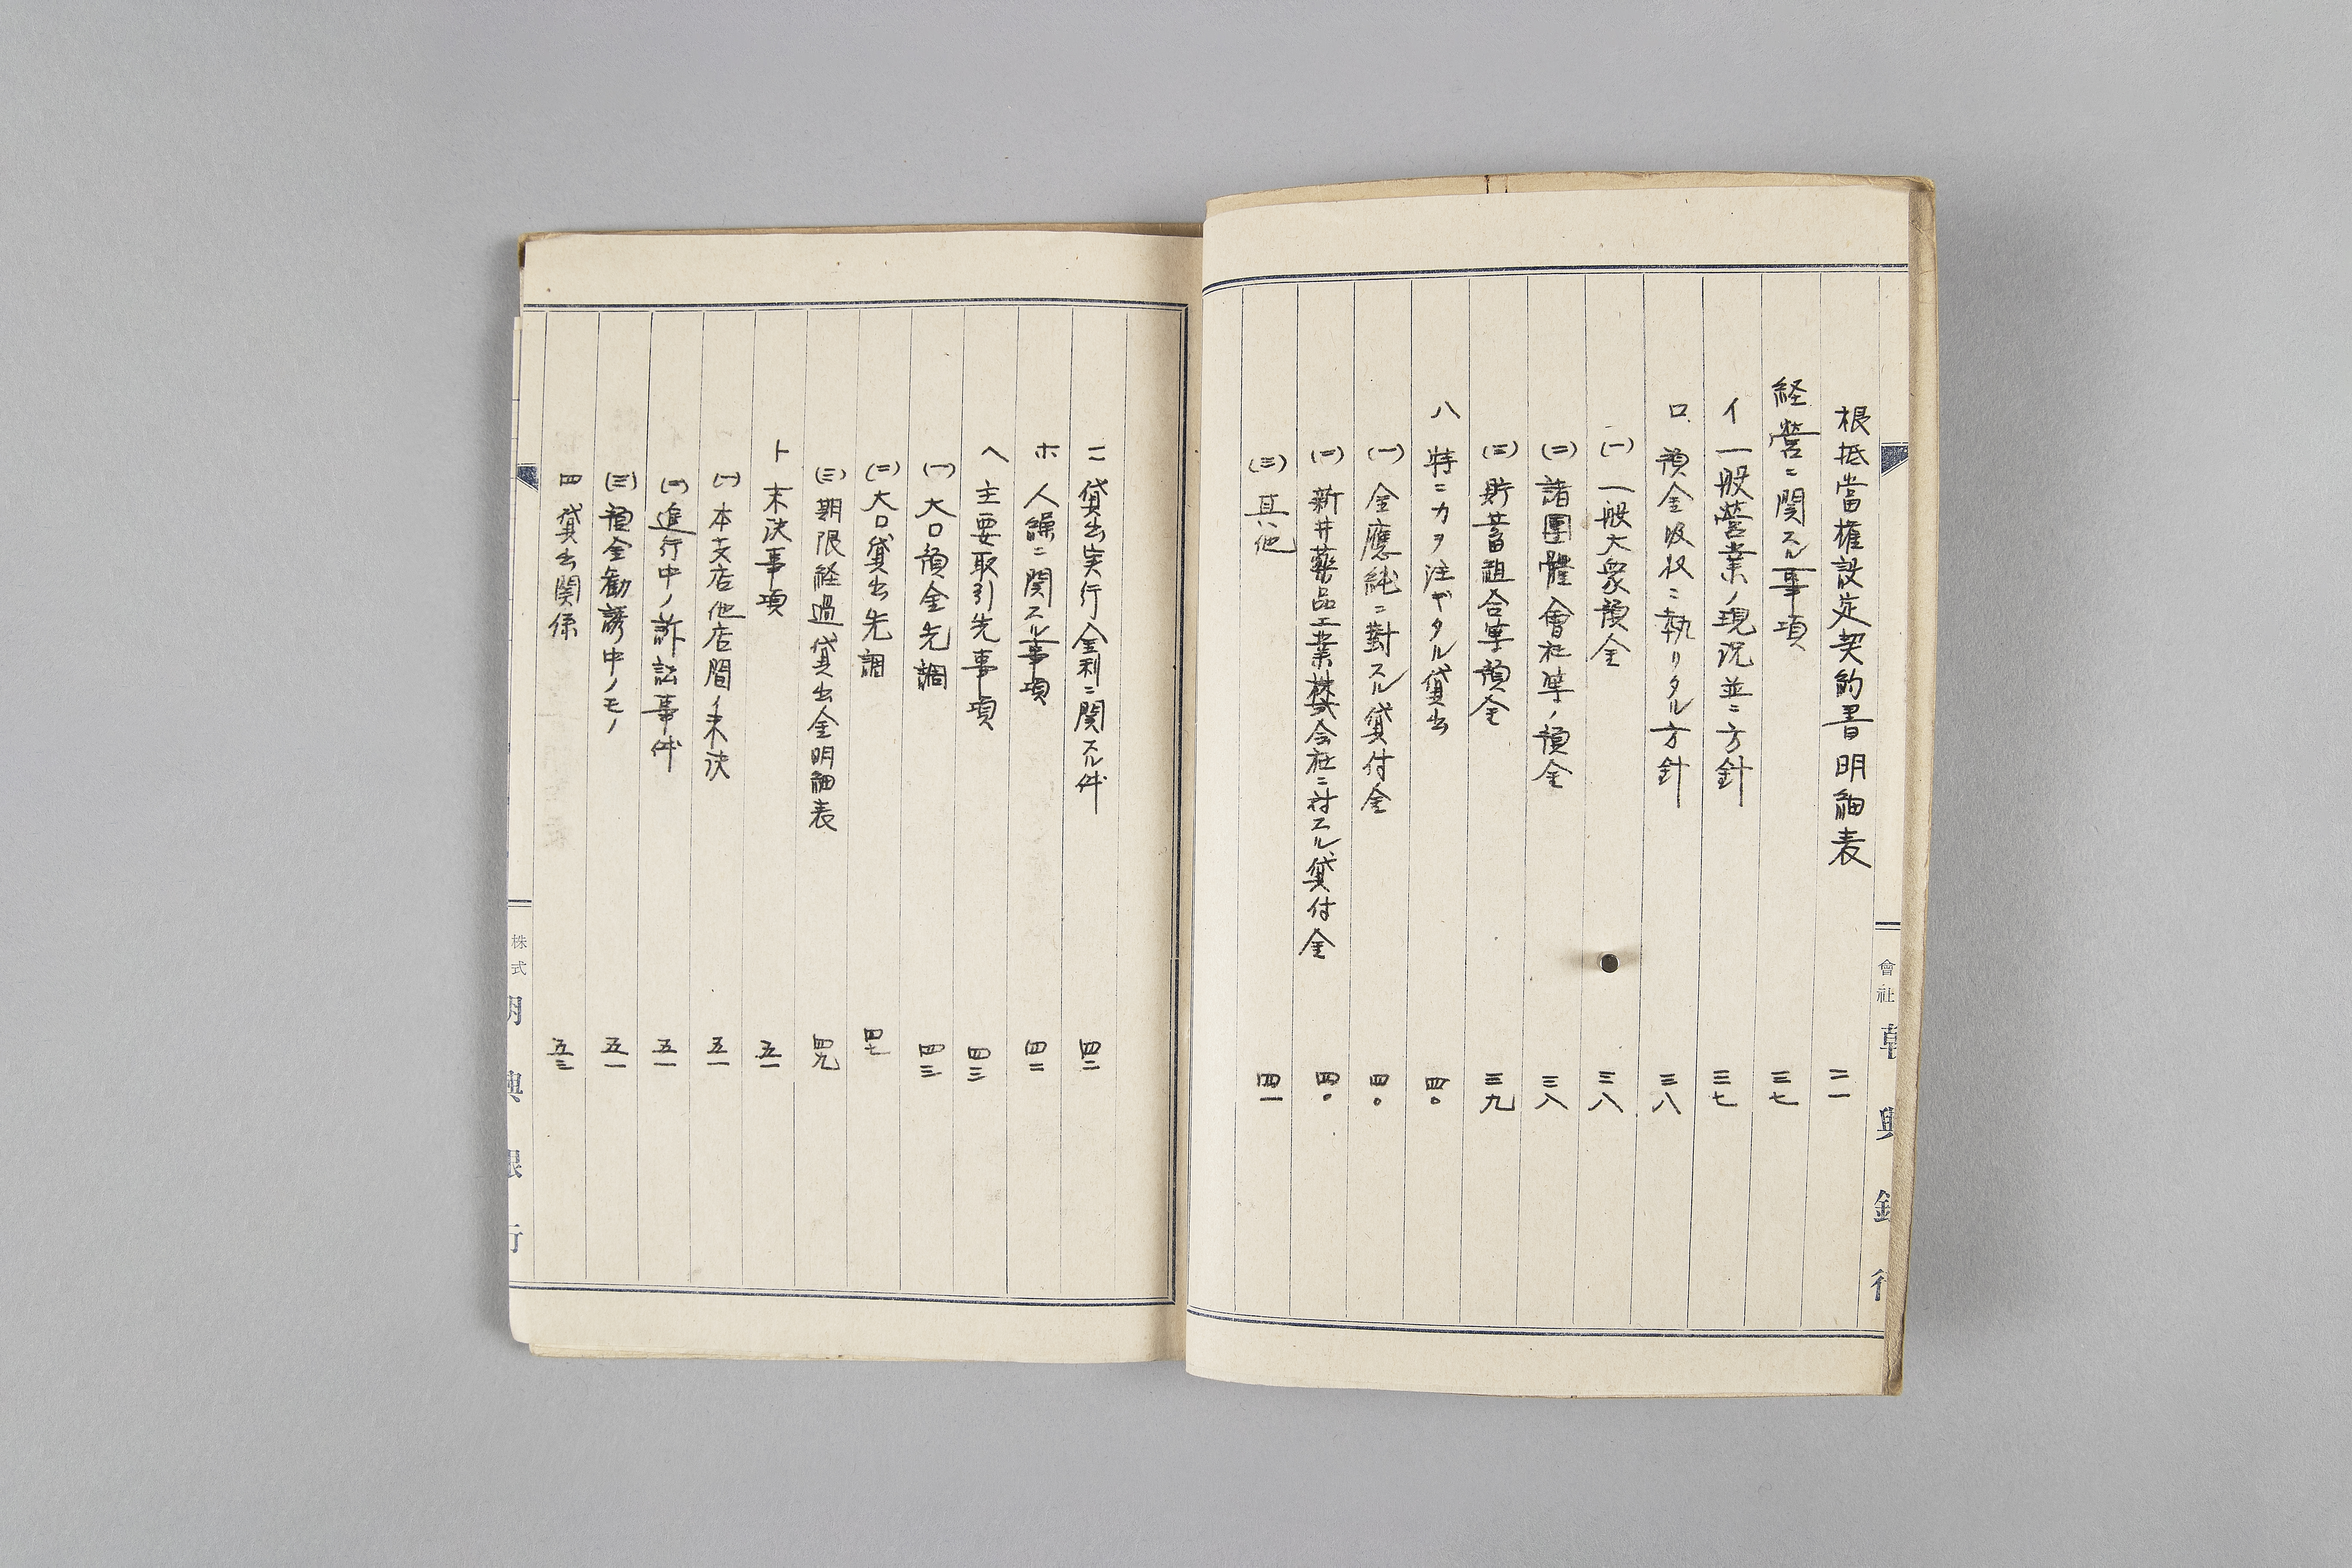 根抵當権設定契約書明細表 二一
経営ニ関スル事項 三七
イ 一般営業ノ現況並ニ方針 三七
ロ 預金吸収ニ執リタル方針 三八
(一) 一般大衆預金 三八
(二) 諸團體會社等ノ預金 三八
(三) 貯蓄組合等預金 三九
ハ 特ニ力ヲ注ギタル貸出 四〇
(一) 金應純ニ對スル貸付金 四〇
(二) 新井藥品工業株式会社ニ対スル貸付金 四〇
(三) 其ノ他 四一
會社 朝興銀行
ニ 貸出実行金利ニ関スル件 四二
ホ 人繰ニ関スル事項 四二
ヘ 主要取引先事項 四三
(一) 大口預金先調 四三
(二) 大口貸出先調 四七
(三) 期限経過貸出金明細表 四九
ト 未決事項 五一
(一) 本支店他店間ノ未決 五一
(二) 進行中ノ訴訟事件 五一
(三) 預金勧誘中ノモノ 五一
四 貸出関係 五三
株式 朝興銀行